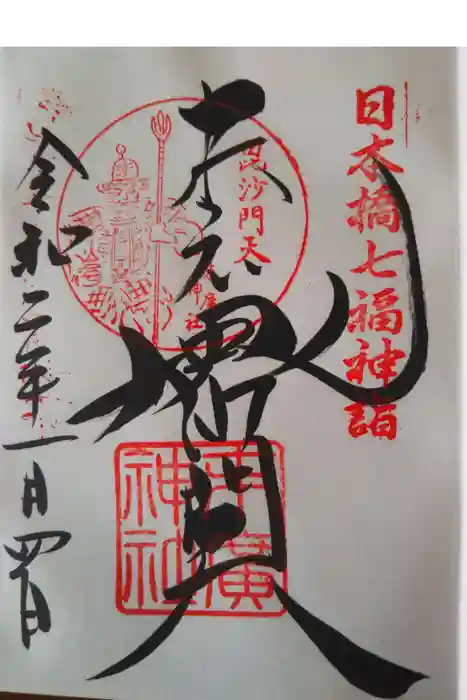 日本橋七福神詣
毘沙門天
末廣神社
毘沙門天
末廣
神社
令和二年一月四日